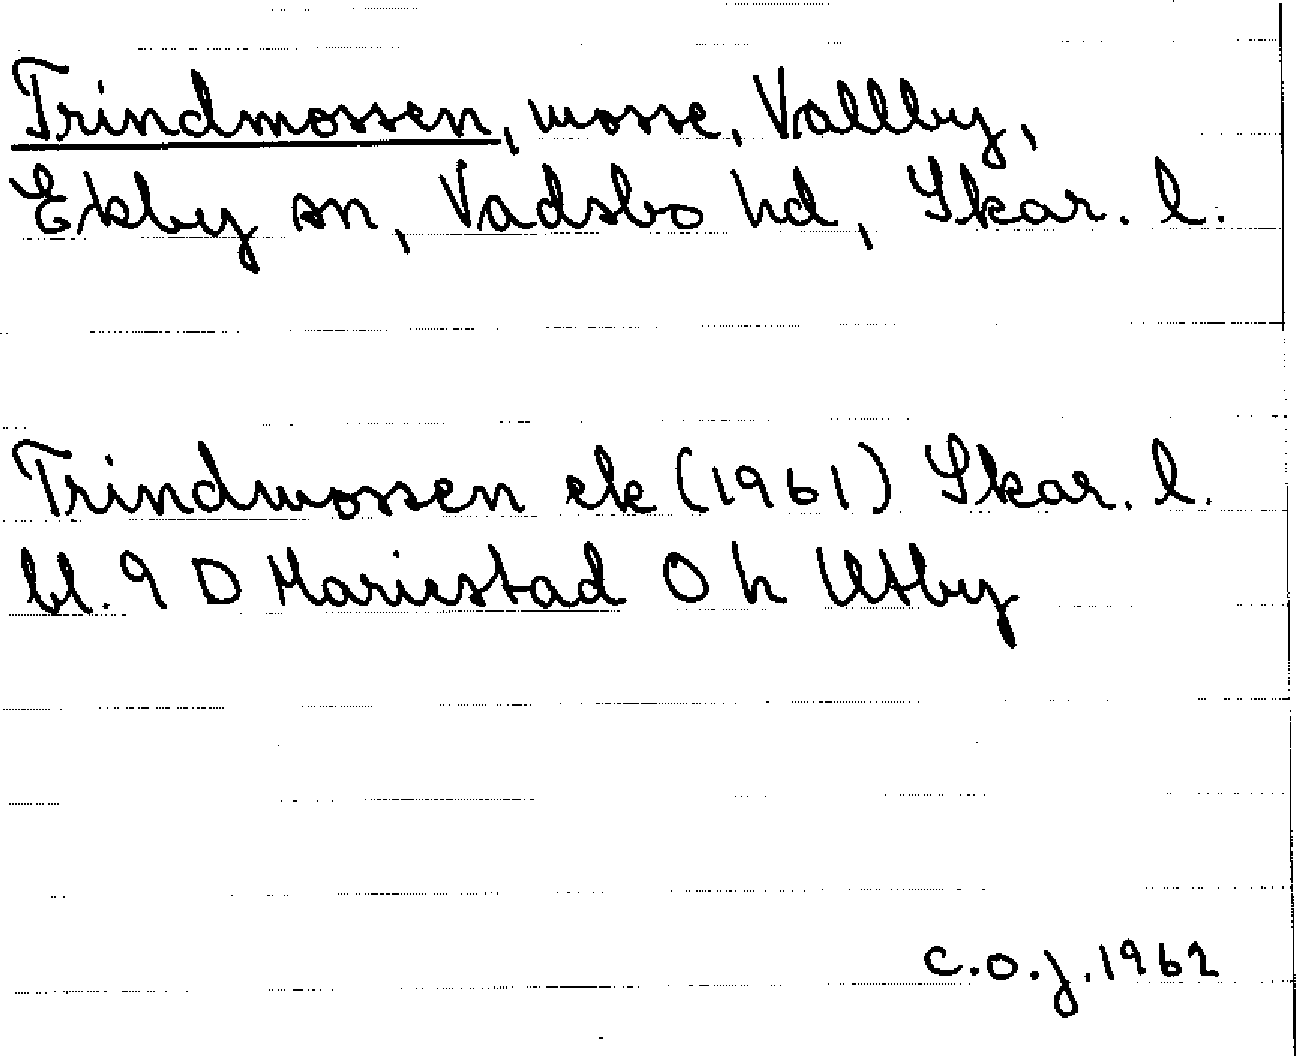 Trindmossen, mosse, Vallby,
Ekby sn, Vadsbo hd, Skar. l.
Trindmossen ek (1961) Skar. l.
bl. 9 D Mariestad O h Utby
C.O.J. 1962